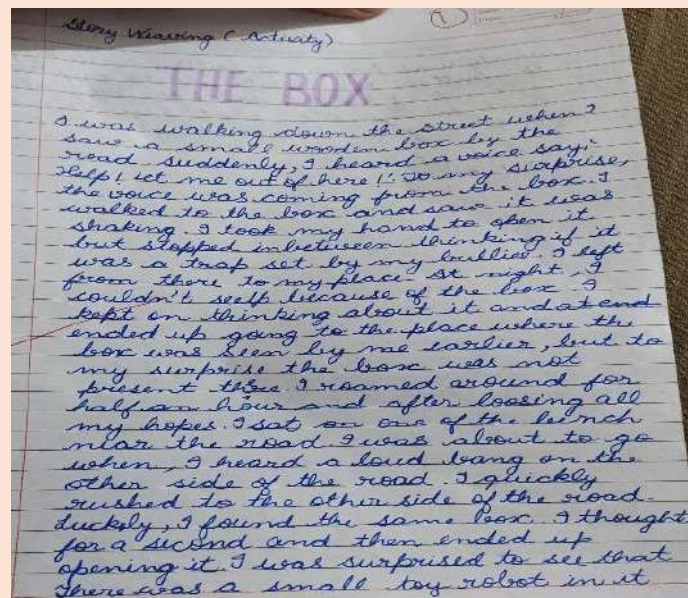 Story Weaving (Activity)
1
THE BOX
I was walking down the street when I
saw a small wooden box by the
road suddenly, I heard a voice say,
Help! let me out of here!! To my surprise,
the voice was coming from the box. I
walked to the box and saw it was
shaking. I took my hand to open it
but stopped inbetween thinking if it
was a trap set by my bullies. I left
from there to my place. At night, I
couldn't seelp because of the box. I
kept on thinking about it and at end
ended up going to the place where the
box was seen by me earlier, but to
my surprise the box was not
present there. I roamed around for
half an hour and after loosing all
my hopes. I sat on one of the bench
near the road. I was about to go
when, I heard a loud bang on the
other side of the road. I quickly
rushed to the other side of the road.
Luckily, I found the same box. I thought
for a second and then ended up
opening it. I was surprised to see that
There was a small toy robot in it